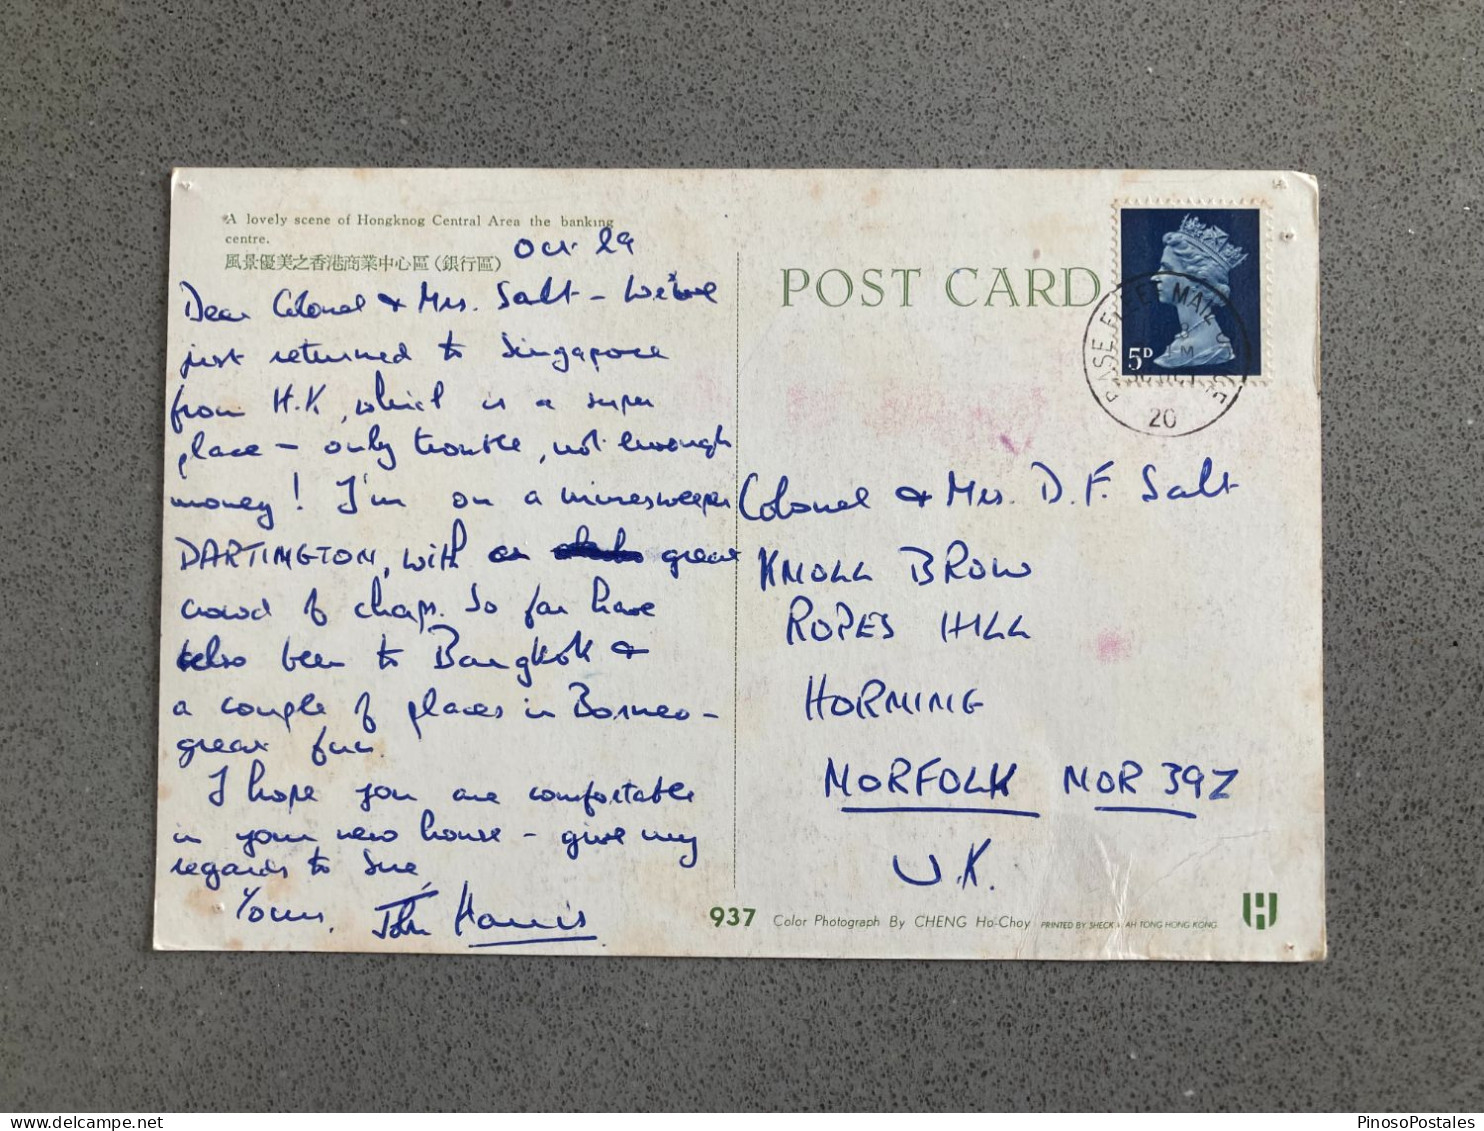 A lovely scene of Hongknog Central Area the banking
centre.
風景優美之香港商業中心區(銀行區)
Oct 29
Dear Colonel & Mrs. Salt – We've
just returned to Singapore
from H.K, which is a super
place – only trouble, not enough
money! I'm on a minesweeper
DARTINGTON, with a great
crowd of chaps. So far have
also been to Bangkok &
a couple of places in Borneo –
great fun.
I hope you are comfortable
in your new house – give my
regards to Sue,
Yours,
John Harris
POST CARD
5D
FLEET MAIL
20
Colonel & Mrs. D. F. Salt
KNOLL BROW
ROPES HILL
HORNING
NORFOLK NOR 39Z
U.K.
937 Color Photograph By CHENG Ho-Choy PRINTED BY SHECK WAH TONG HONG KONG
H
PinosoPostales